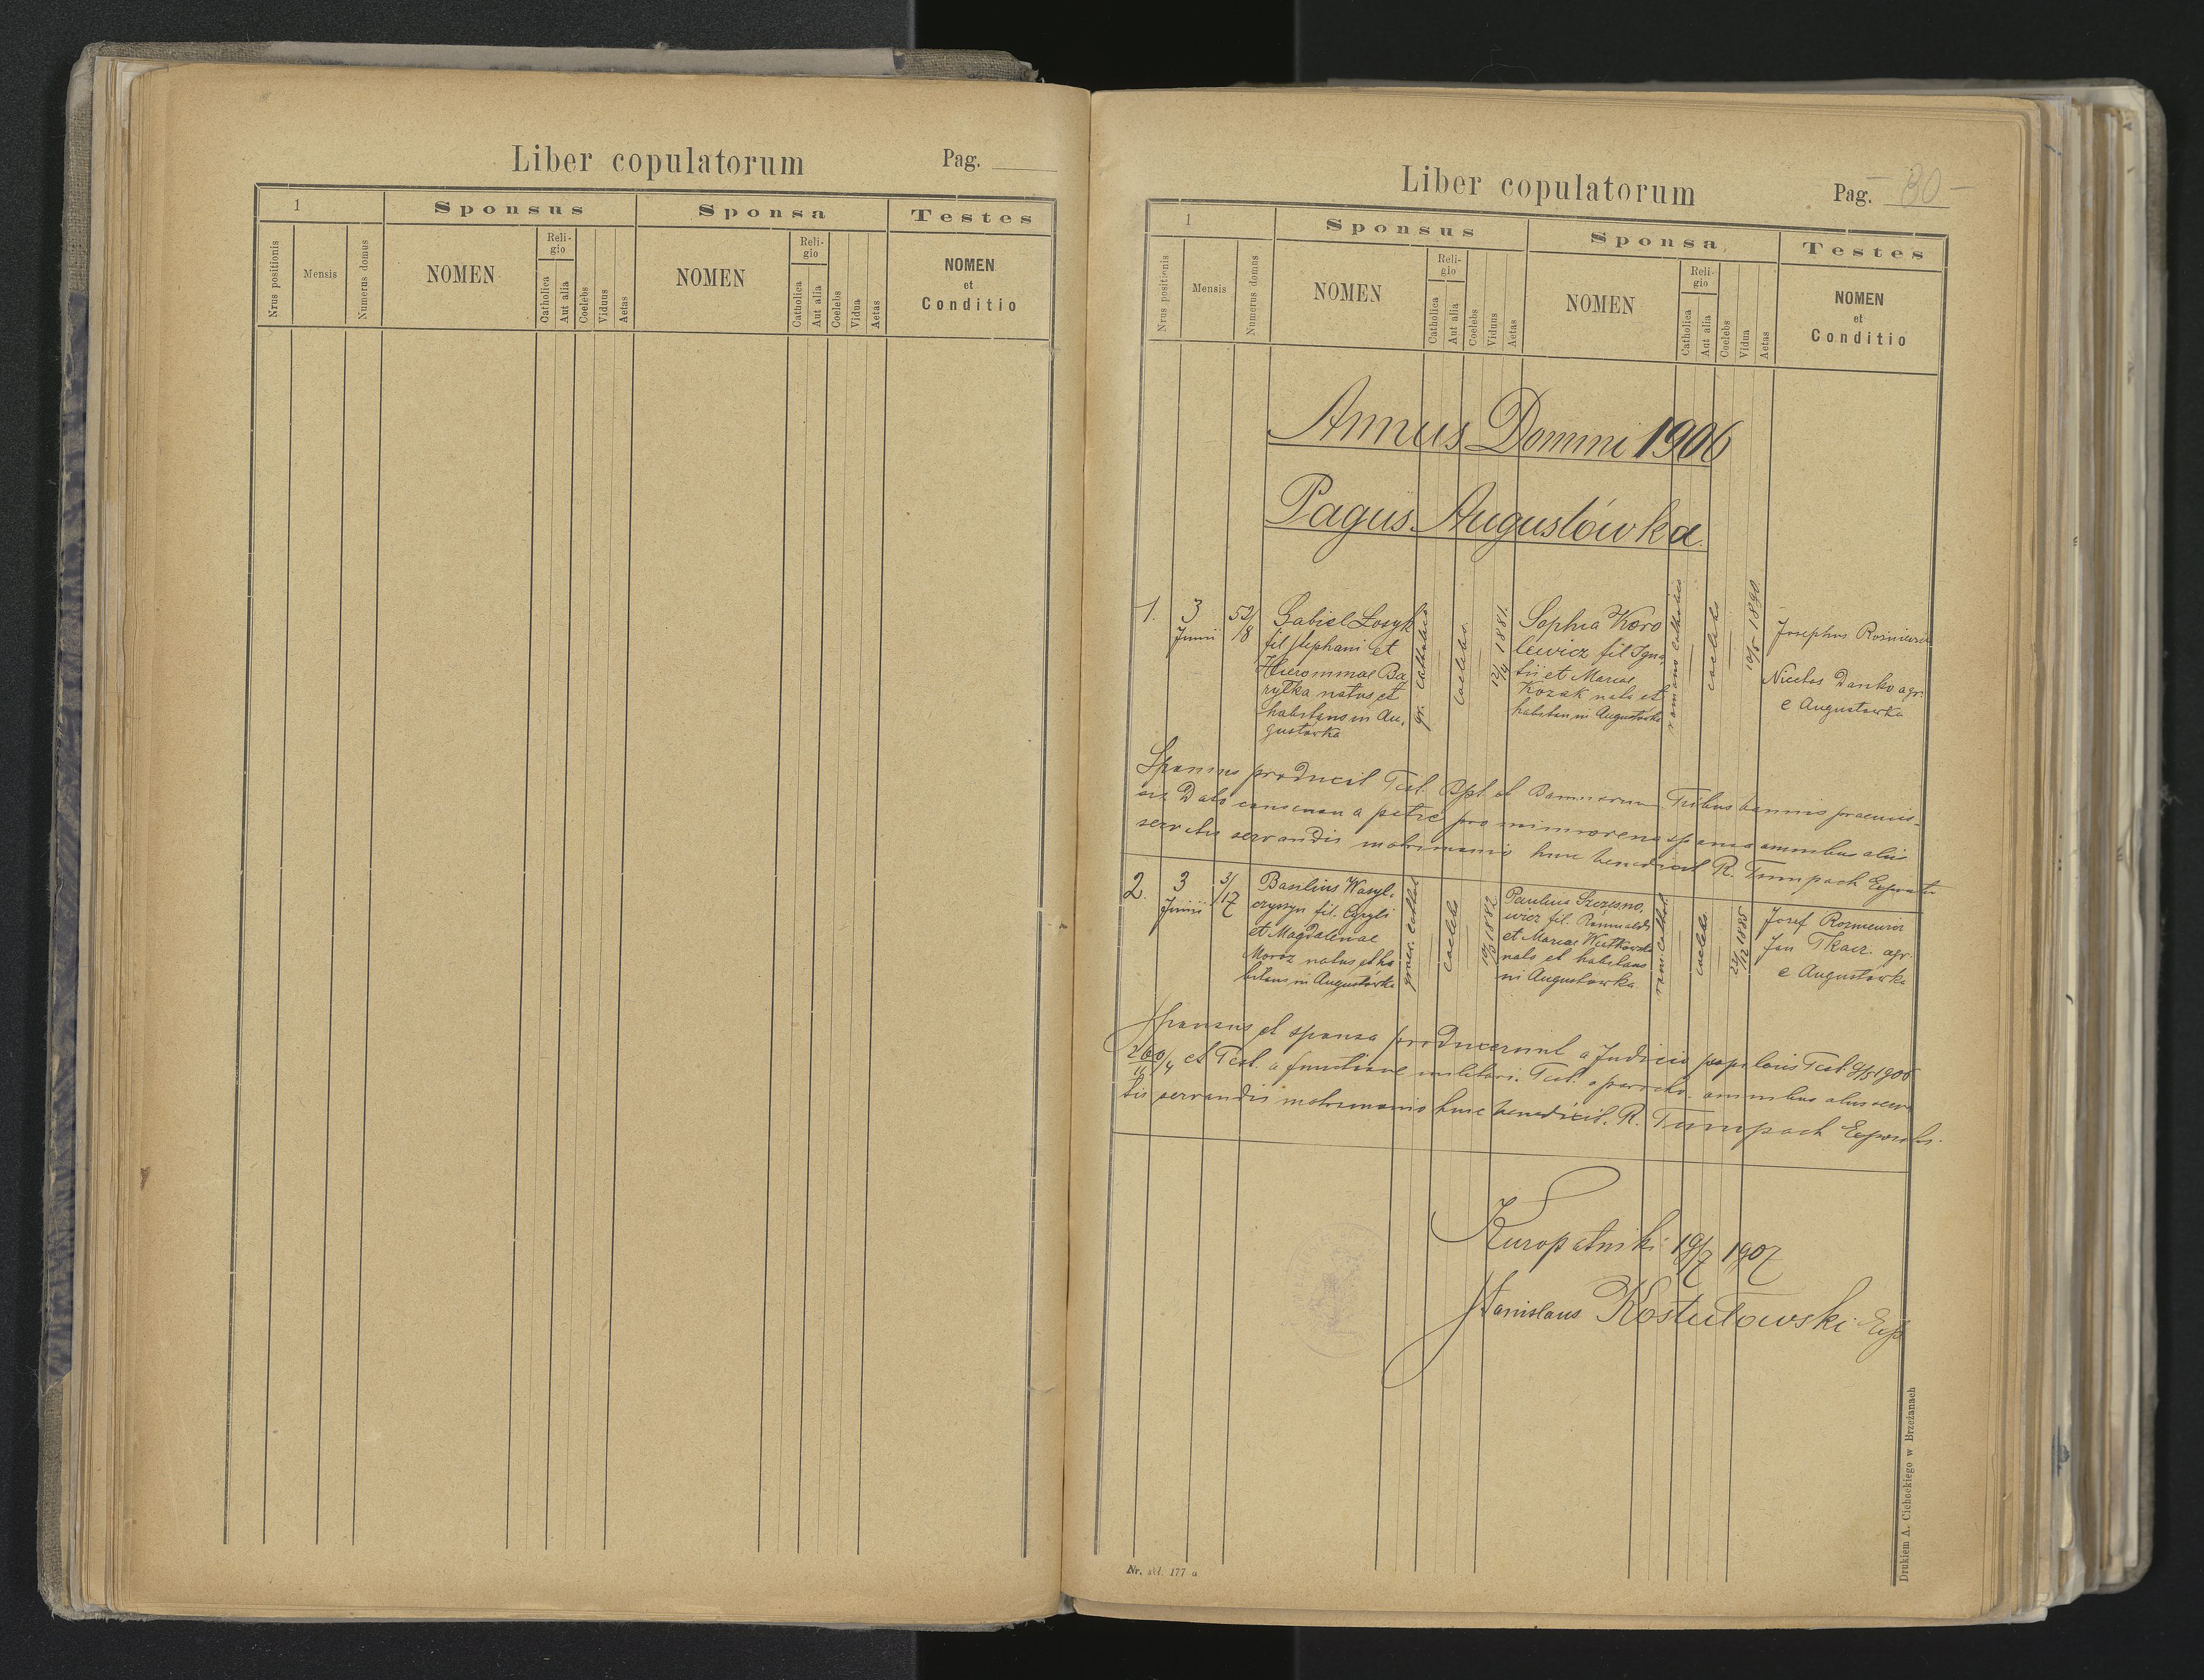 Liber copulatorum Pag.
1 Sponsus Sponsa Testes
Nrus positionis Mensis Numerus domus NOMEN Religio Catholica Aut alia Coelebs Viduus Aetas NOMEN Religio Catholica Aut alia Coelebs Vidua Aetas NOMEN et Conditio
Liber copulatorum Pag. 30
1 Sponsus Sponsa Testes
Nrus positionis Mensis Numerus domus NOMEN Religio Catholica Aut alia Coelebs Viduus Aetas NOMEN Religio Catholica Aut alia Coelebs Vidua Aetas NOMEN et Conditio
Annus Domini 1906
Pagus Augustówka.
1. 3 Junii 52/18
Gabiel Łosyk
fil Stephani et
Hieronimae Ba
rytka natus et
habitans in Au,
gustowka
gr. catholica
coelebs.
12/4 1881.
Sophia Koro
lewicz fil Igna
tii et Mariae
Kozak nata et
habitan in Augustowka
romano catholica
coelebs
10/5 1890
Josephus
Nicetas Danko agr.
e Augustowka
Sponsus producit Test. Bpt. et Bannorum. Tribus bannis praemis-
sis Dato consensu a patre pro minorena sponsa omnibus aliis
servatis servandis matrimonio hunc benedixit R. Tumpach
2. 3 Junii 3/17
Basilius Wasyl-
czyszyn fil. Cyryli
et Magdalenae
Moroz natus et ha
bitans in Augustówka
graec. cathol
coelebs
10/3 1882
Paulina Szczesno,
wicz fil. Romualdi
et Mariae Witkowska
nata et habitans
in Augustowka
rom. cathol.
coelebs
22/12 1885
Josef
Jan Tkacz. agr.
e Augustówka
Sponsus et sponsa producerunt a Judicio Test. 9/5 1906
et Test. a functione militari. Test. a parocho. omnibus aliis serva
tis servandis matrimonio hunc benedixit. R. Tumpach
Kuropatniki 19/7 1907
Stanislaus Kostutowski Exp
Nr. skł. 177 a
Drukiem A. Cichockiego w Brzeżanach